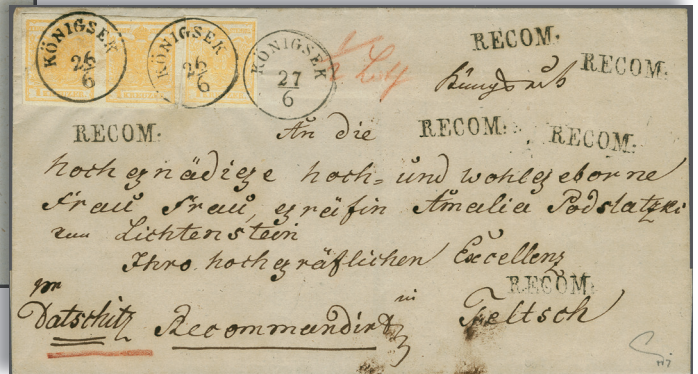 KÖNIGSEK 26/6
KÖNIGSEK 26/6
KÖNIGSEK 27/6
RECOM:
RECOM:
RECOM:
An die
RECOM:
RECOM:
hochgnädige hoch= und wohlgeborne
Frau Frau, gräfin Amalia Podslatzki
zum Lichtenstein
Ihro hochgräflichen Excellenz
RECOM:
pr
Datschitz Recommandirt in Teltsch